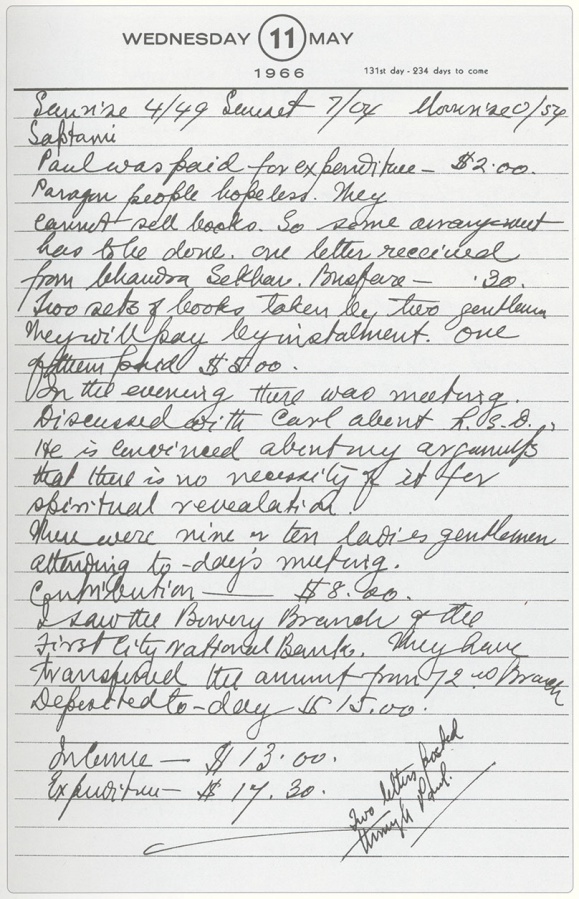 WEDNESDAY 11 MAY
1966
131st day - 234 days to come
Sunrise 4/49 Sunset 7/04 Moonrise 0/54
Saptami
Paul was paid for expenditure – $2.00.
Paragon people hopeless. They
cannot sell books. So some arrangement
has to be done. One letter received
from Chandra Sekhar. Busfare – .30.
Two sets of books taken by two gentlemen
They will pay by instalment. One
of them paid $5.00.
In the evening there was meeting.
Discussed with Carl about L.S.D.,
He is convinced about my arguments
that there is no necessity of it for
spiritual revealation.
There were nine or ten ladies gentlemen
attending to-day's meeting.
Contribution — $8.00.
I saw the Bowery Branch of the
First City National Banks. They have
transferred the amount from 72 Branch
Deposited to-day $15.00.
Income — $13.00.
Expenditure — $17.30.
Two letters posted
through Paul.